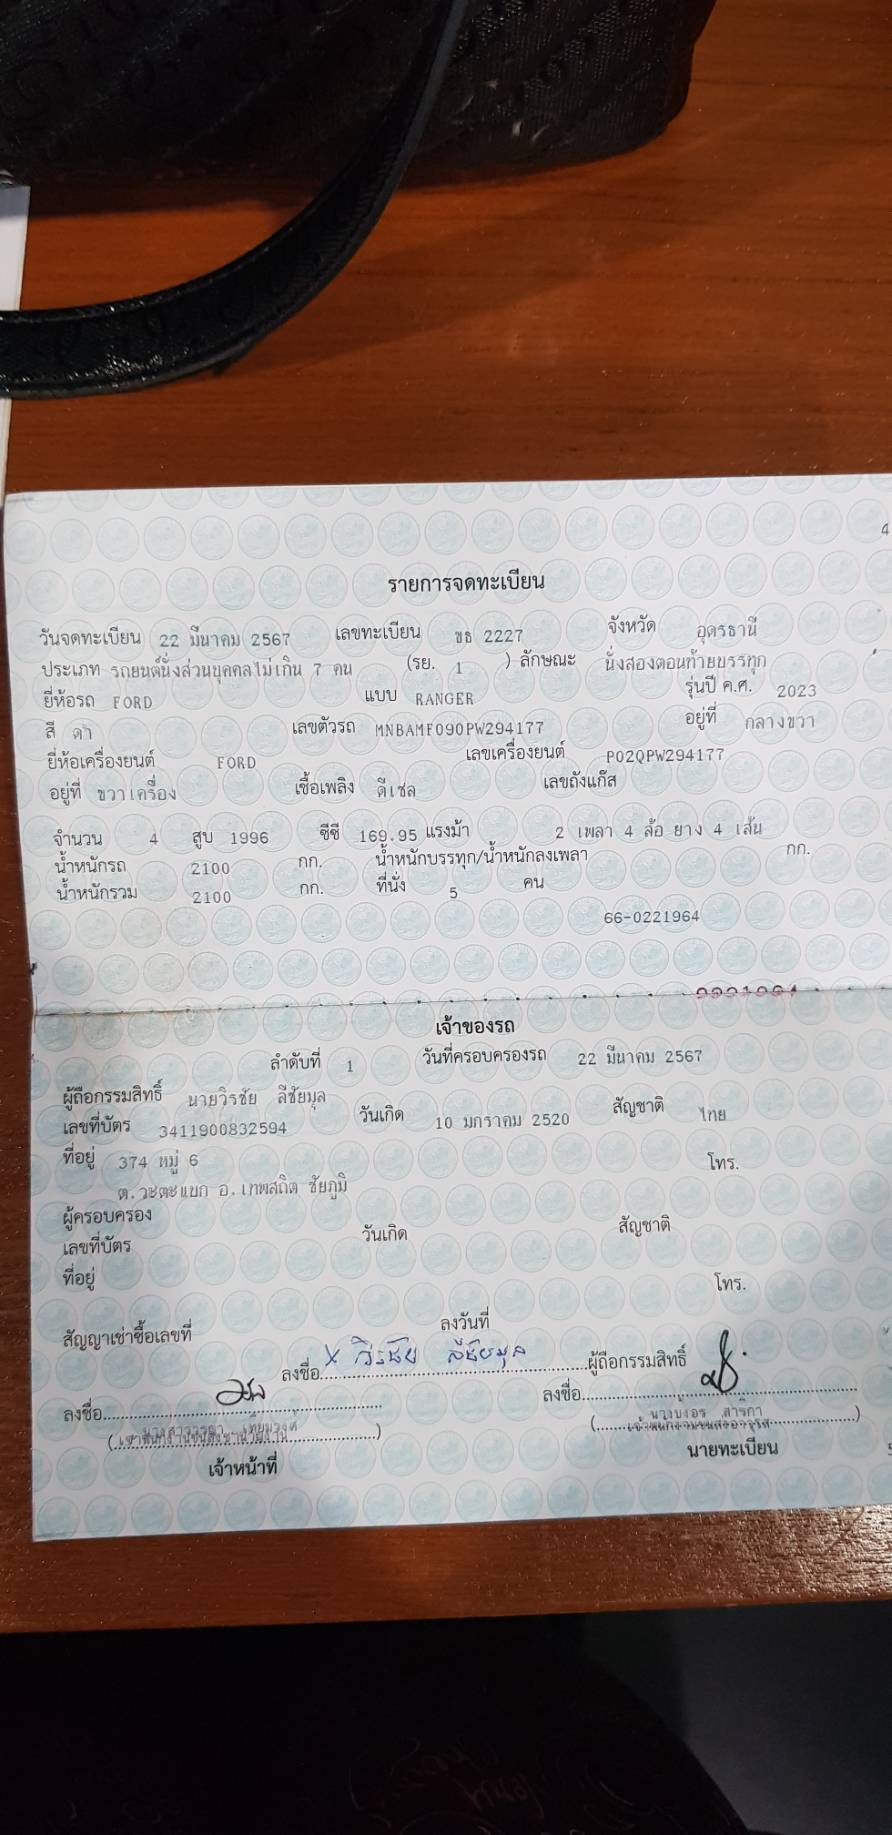 4
รายการจดทะเบียน
วันจดทะเบียน 22 มีนาคม 2567 เลขทะเบียน ขธ 2227 จังหวัด อุดรธานี
ประเภท รถยนต์นั่งส่วนบุคคลไม่เกิน 7 คน (รย. 1 ) ลักษณะ นั่งสองตอนท้ายบรรทุก
ยี่ห้อรถ FORD แบบ RANGER รุ่นปี ค.ศ. 2023
สี ดำ เลขตัวรถ MNBAMF090PW294177 อยู่ที่ กลางขวา
ยี่ห้อเครื่องยนต์ FORD เลขเครื่องยนต์ P02QPW294177
อยู่ที่ ขวาเครื่อง เชื้อเพลิง ดีเซล เลขถังแก๊ส
จำนวน 4 สูบ 1996 ซีซี 169.95 แรงม้า 2 เพลา 4 ล้อ ยาง 4 เส้น
น้ำหนักรถ 2100 กก. น้ำหนักบรรทุก/น้ำหนักลงเพลา กก.
น้ำหนักรวม 2100 กก. ที่นั่ง 5 คน
66-0221964
เจ้าของรถ
ลำดับที่ 1 วันที่ครอบครองรถ 22 มีนาคม 2567
ผู้ถือกรรมสิทธิ์ นายวิรชัย ลีชัยมุล
เลขที่บัตร 3411900832594 วันเกิด 10 มกราคม 2520 สัญชาติ ไทย
ที่อยู่ 374 หมู่ 6 โทร.
ต.วะตะแบก อ.เทพสถิต ชัยภูมิ
ผู้ครอบครอง
เลขที่บัตร วันเกิด สัญชาติ
ที่อยู่ โทร.
สัญญาเช่าซื้อเลขที่ ลงวันที่
ลงชื่อ x วิรชัย ลีชัยมุล ผู้ถือกรรมสิทธิ์
ลงชื่อ ลงชื่อ
( ) (นางบังอร )
เจ้าหน้าที่ นายทะเบียน
5